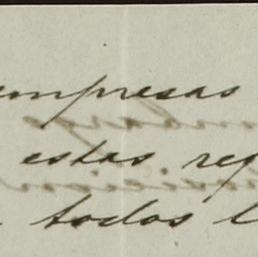 empresas
estas reg
todos l